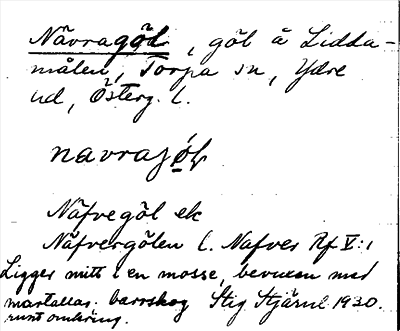 Nävragöl, göl å Lidda-
målen, Torpa sn, Ydre
hd, Österg. l.
navrajø̄l
Näfvegöl ek
Näfvergölen l. Nafver Rf V:1
Ligger mitt i en mosse, bevuxen med
martallar. barrskog Stig Stjärnl. 1930.
runt omkring.